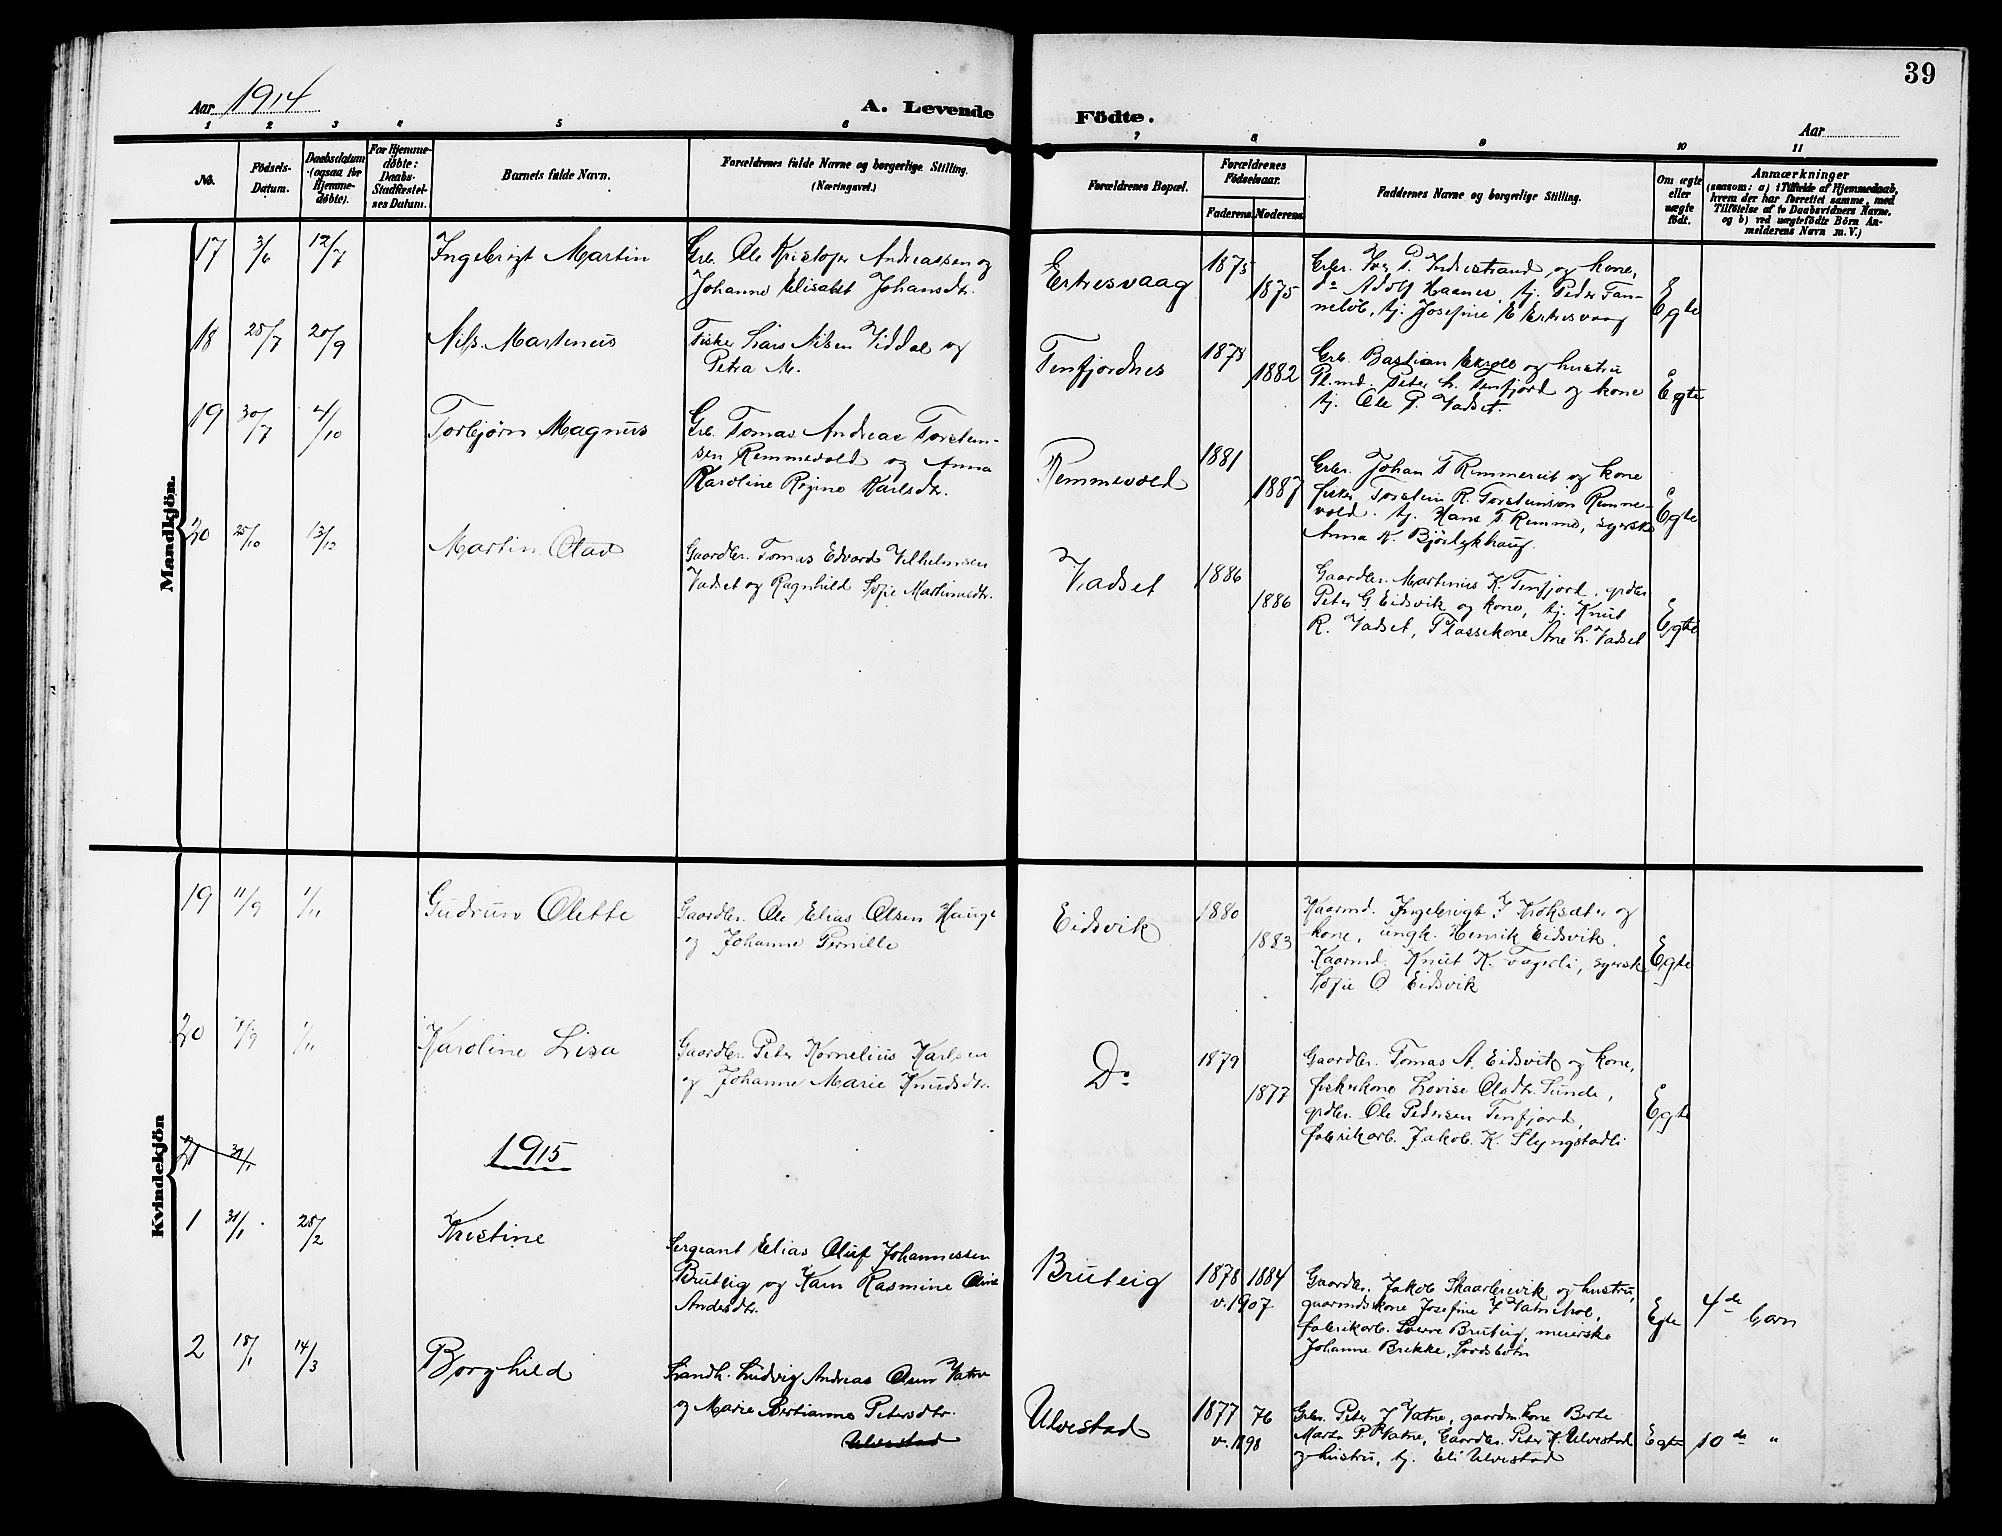 39
Aar 1914
A. Levende Födte.
Aar
1 2 3 4 5 6 7 8 9 10 11
No.
Födsels-
Datum.
Daabsdatum
(ogsaa for
Hjemme-
døbte).
For Hjemme-
døbte:
Daabs-
Stadfæstel-
ses Datum.
Barnets fulde Navn.
Forældrenes fulde Navne og borgerlige Stilling.
(Næringsvei.)
Forældrenes Bopæl.
Forældrenes
Födselsaar.
Faderens Moderens
Faddernes Navne og borgerlige Stilling.
Om ægte
eller
uægte
födt.
Anmærkninger
(saasom: a) i Tilfælde af Hjemmedaab,
hvem der har forrettet samme, med
Tilföielse af to Daabsvidners Navne,
og b) ved uægtefödte Börn An-
melderens Navn m. V.)
Mandkjön.
17 3/6 12/7 Ingebrigt Martin
Grb. Ole Kristofer Andreassen og
Johanne Elisabet Johansdtr.
Ertresvaag
1875
1875
Grbr. Iver P. Indrestrand og kone,
do Adolf Haanes, tj. Peder Tan-
neløb, tj. Josefine E Ertresvaag
Egte
18 25/7 20/9 Nils Martinus
Fisker Lars Nilsen Viddal og
Petra M.
Tenfjordnes
1878
1882
Grb. Bastian Ekroll og hustru
Pl.md. Peter L. Tenfjord og kone
tj. Ole P. Vadset.
Egte
19 30/7 4/10 Torbjørn Magnus
Grb. Tomas Andreas Torstein-
sen Remmevold og Anna
Karoline Regine Karlsdtr.
Remmevold
1881
1887
Grbr. Johan T Remmereit og kone
fisker Torstein R. Torsteinson Remme-
vold. tj. Hans T Remme, syerske
Anna K. Bjørlykhaug.
Egte
20 25/10 13/12 Martin Olad
Gaardbr. Tomas Edvard Vilhelmsen
Vadset og Ragnhild Sofie Martinusdtr.
Vadset
1886
1886
Gaardbr. Martinus K. Tenfjord, grdbr
Peter G. Eidsvik og kone, tj. Knut
R. Vadset, Plassekone Ane L. Vadset
Egte
Kvindekjön
19 11/9 1/11 Gudrun Olette
Gaardbr. Ole Elias Olsen Hauge
og Johanne Pernille
Eidsvik
1880
1883
Kaarmd. Ingebrigt I Kroksæter og
kone, ungk. Henrik Eidsvik.
Kaarmd. Knut K. Fagerli, syersk
Sofie O Eidsvik
Egte
20 7/9 1/11 Karoline Lisa
Gaardbr. Peter Kornelius Karlsen
og Johanne Marie Knudsdtr.
Do
1879
1877
Gaardbr. Tomas A. Eidsvik og kone,
fiskerkone Lovise Olsdtr. Sunde,
grdbr. Ole Pedersen Tenfjord,
fabrikarb. Jakob K. Slyngstadli
Egte
21 31/1
1915
1 31/1 28/2 Kristine
Sergeant Elias Oluf Johannessen
Bruteig og Karn Rasmine Oline
Andersdtr.
Bruteig
1878 1884
v. 1907.
Gaardbr. Jakob Skaarbrevik og hustru,
gaarmdskone Josefine I Vatnehol,
fabrikarb. Sverre Bruteig, meierske
Johanne Brekke, Sordsbotn
Egte
4de barn
2 18/1 14/3 Borghild
Landh. Ludvig Andreas Olsen Vatne
og Marie Bertianne Petersdtr.
Ulvestad
Ulvestad
1877 76
v. 1898
Grbr. Peter I Vatne, gaardm.kone Berte
Marta P. Vatne, Gaardbr. Peter K. Ulvestad
og hustru, tj. Eli Ulvestad
Egte
10de "